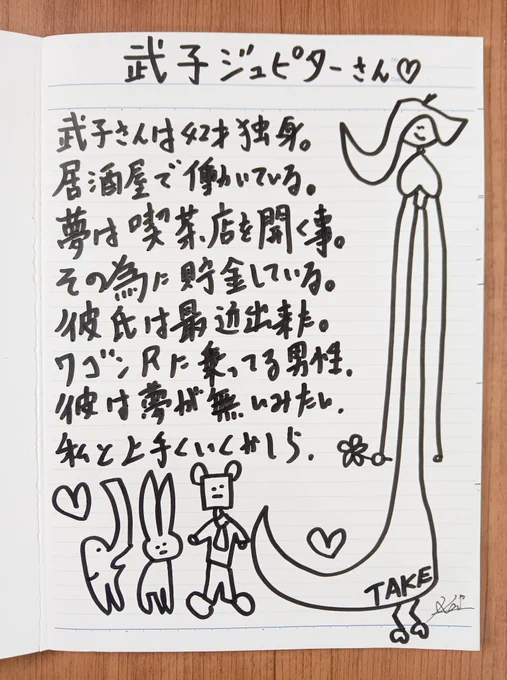 武子ジュピターさん♡
武子さんは42才独身。
居酒屋で働いている。
夢は喫茶店を開く事。
その為に貯金している。
彼氏は最近出来た。
ワゴンRに乗ってる男性.
彼は夢が無いみたい.
私と上手くいくかしら.
TAKE